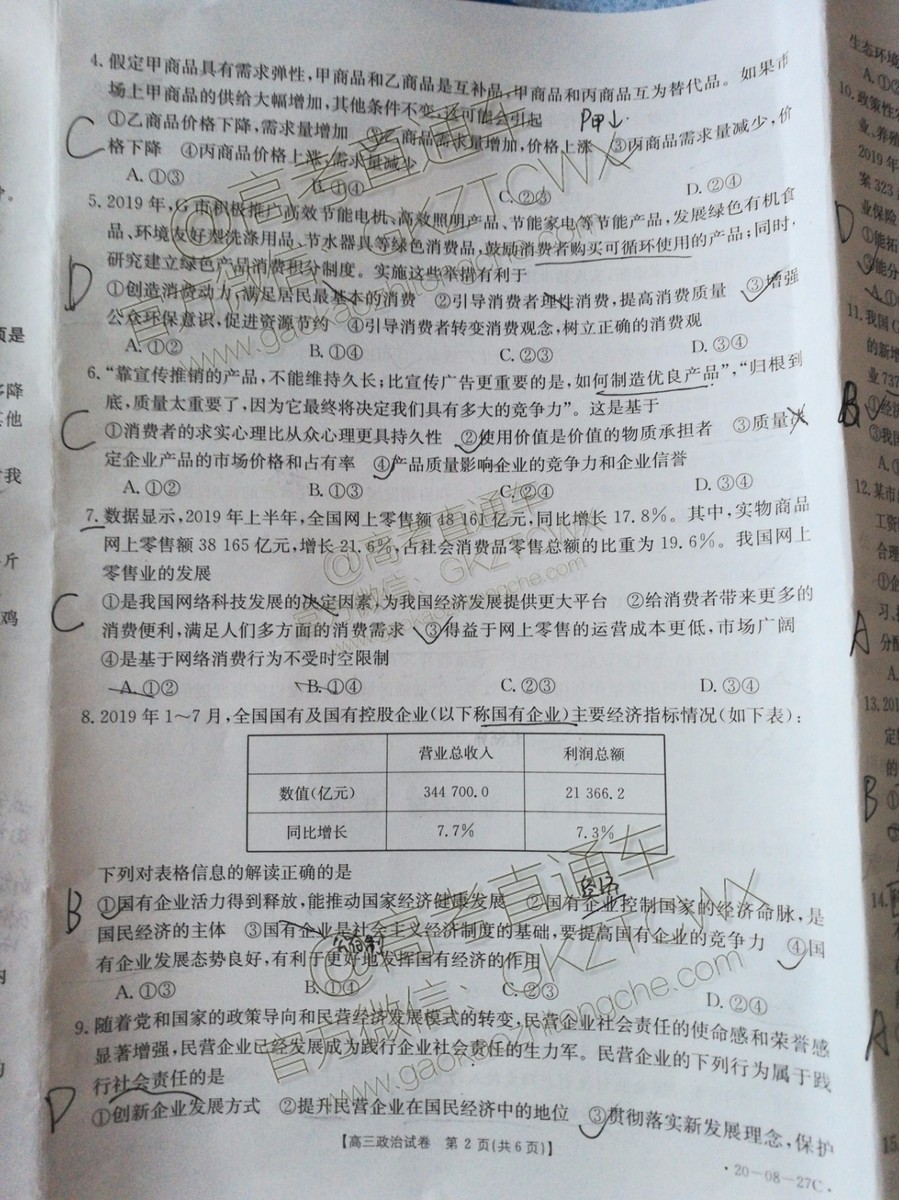 4. 假定甲商品具有需求弹性，甲商品和乙商品是互补品，甲商品和丙商品互为替代品。如果市
场上甲商品的供给大幅增加，其他条件不变，这可能会引起
P甲↓
①乙商品价格下降，需求量增加 ②乙商品需求量增加，价格上涨 ③丙商品需求量减少，价
格下降 ④丙商品价格上涨，需求量减少
C
A. ①③ B. ①④ C. ②③ D. ②④
5. 2019 年，G 市积极推广高效节能电机、高效照明产品、节能家电等节能产品，发展绿色有机食
品、环境友好型洗涤用品、节水器具等绿色消费品，鼓励消费者购买可循环使用的产品；同时，
研究建立绿色产品消费积分制度。实施这些举措有利于
D
①创造消费动力，满足居民最基本的消费 ②引导消费者理性消费，提高消费质量 ③增强
公众环保意识，促进资源节约 ④引导消费者转变消费观念，树立正确的消费观
A. ①② B. ①④ C. ②③ D. ③④
6. “靠宣传推销的产品，不能维持久长；比宣传广告更重要的是，如何制造优良产品”，“归根到
底，质量太重要了，因为它最终将决定我们具有多大的竞争力”。这是基于
C
①消费者的求实心理比从众心理更具持久性 ②使用价值是价值的物质承担者 ③质量决
定企业产品的市场价格和占有率 ④产品质量影响企业的竞争力和企业信誉
A. ①② B. ①③ C. ②④ D. ③④
7. 数据显示，2019 年上半年，全国网上零售额 48 161 亿元，同比增长 17.8%。其中，实物商品
网上零售额 38 165 亿元，增长 21.6%，占社会消费品零售总额的比重为 19.6%。我国网上
零售业的发展
C
①是我国网络科技发展的决定因素，为我国经济发展提供更大平台 ②给消费者带来更多的
消费便利，满足人们多方面的消费需求 ③得益于网上零售的运营成本更低，市场广阔
④是基于网络消费行为不受时空限制
A. ①② B. ①④ C. ②③ D. ③④
8. 2019 年 1～7 月，全国国有及国有控股企业(以下称国有企业)主要经济指标情况(如下表)：
营业总收入 利润总额
数值(亿元) 344 700.0 21 366.2
同比增长 7.7% 7.3%
下列对表格信息的解读正确的是
B
经济
①国有企业活力得到释放，能推动国家经济健康发展 ②国有企业控制国家的经济命脉，是
国民经济的主体 ③国有企业是社会主义经济制度的基础，要提高国有企业的竞争力 ④国
公有制
有企业发展态势良好，有利于更好地发挥国有经济的作用
A. ①③ B. ①④ C. ②③ D. ②④
9. 随着党和国家的政策导向和民营经济发展模式的转变，民营企业社会责任的使命感和荣誉感
显著增强，民营企业已经发展成为践行企业社会责任的生力军。民营企业的下列行为属于践
行社会责任的是
D
①创新企业发展方式 ②提升民营企业在国民经济中的地位 ③贯彻落实新发展理念，保护
【高三政治试卷 第 2 页(共 6 页)】
·20-08-27C·
@高考直通车
官方微信：GKZTCWX
www.gaokaozhitongche.com
@高考直通车
官方微信：GKZTCWX
www.gaokaozhitongche.com
@高考直通车
官方微信：GKZTCWX
www.gaokaozhitongche.com
生态环境
A. ①②
10. 政策性农
业、养殖
2019年
案 323
业保险
D
①能拓
③能分
A. ①
11. 我国
的新增
业 737
B
①经济
③我国
A. ①
12. 某市
工资
合理
①企
习、
A
分配
A.
13. 201
定
的
B
14.
A
15.